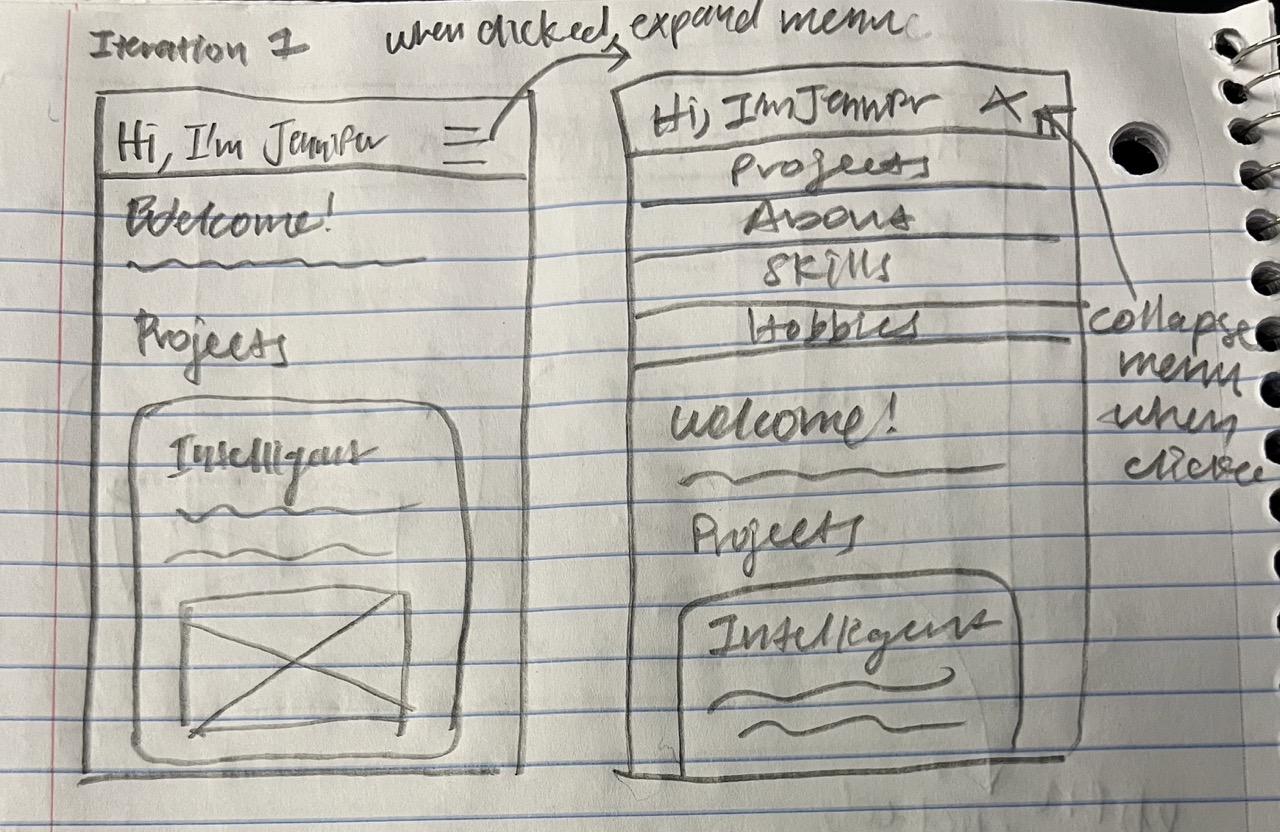 Iteration 1
when clicked, expand menu
Hi, I'm Jennifer
Welcome!
Projects
Intelligent
Hi, I'm Jennifer X
Projects
About
Skills
Hobbies
welcome!
Projects
Intelligent
collapse
menu
when
clicked